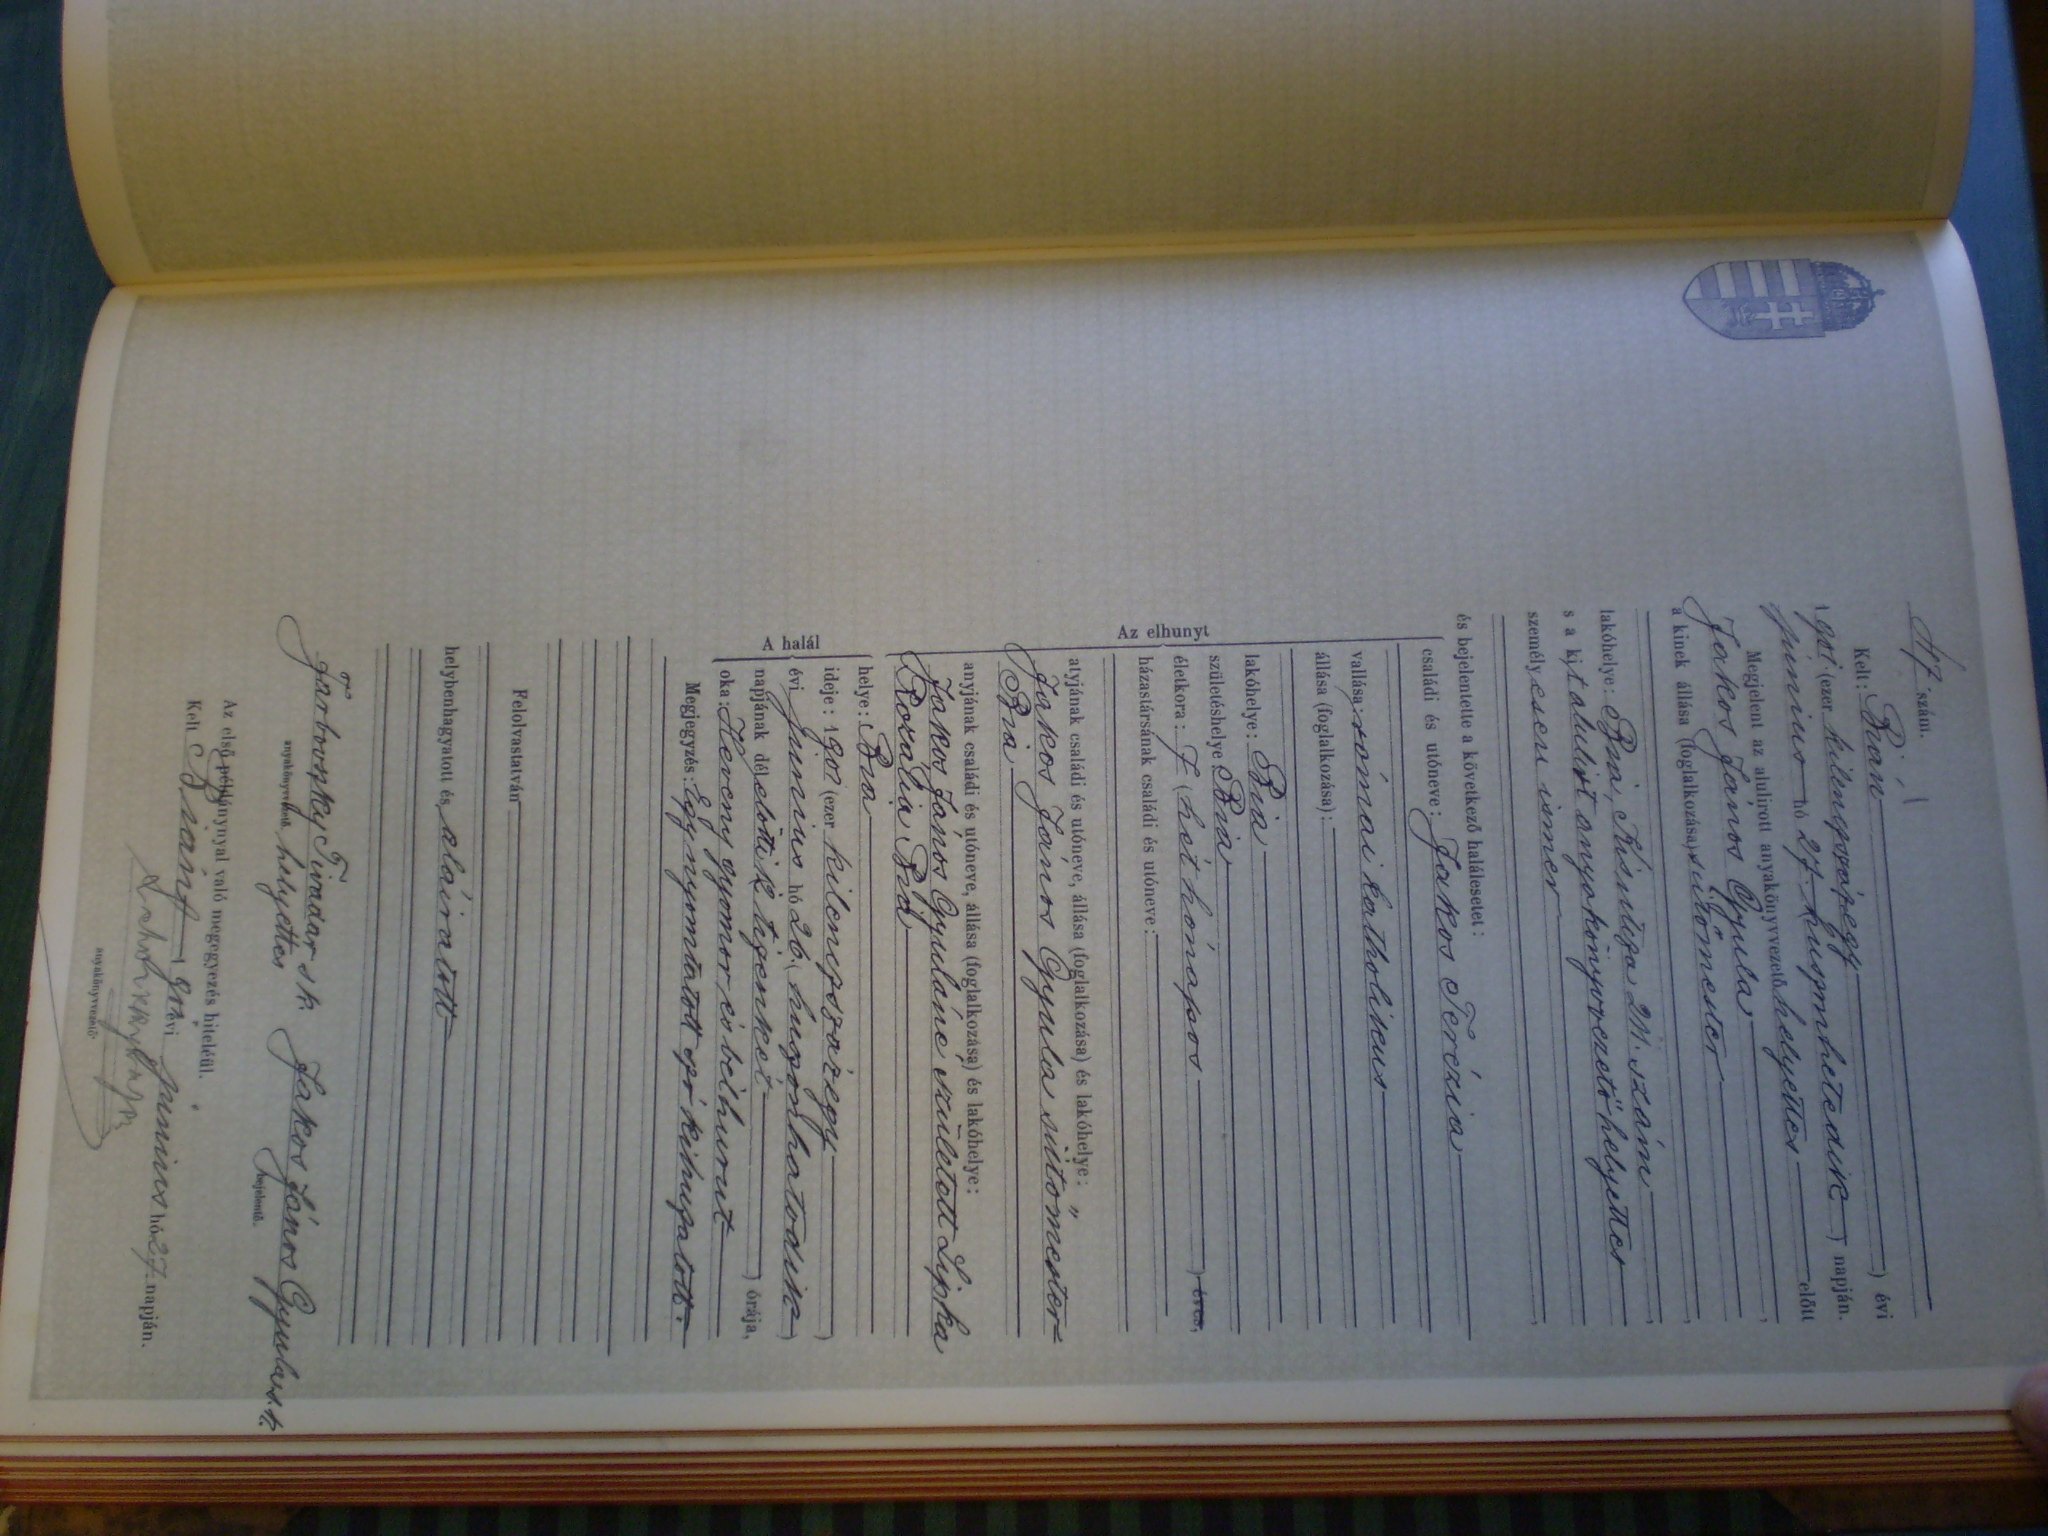 47. szám.
Kelt: Bián, ) évi
1901 (ezer kilenczszázegy
június hó 27 (huszonhetedik ) napján.
Megjelent az alulirott anyakönyvvezető helyettes előtt
Jakos János Gyula ,
a kinek állása (foglalkozása) sütőmester ,
lakóhelye: Bia, 211. szám ,
s a kit alulirt anyakönyvvezető helyettes
személyesen ismer ,
és bejelentette a következő halálesetet:
Az elhunyt
családi és utóneve: Jakos Terézia
vallása: római katholikus
állása (foglalkozása):
lakóhelye: Bia
születéshelye Bia
életkora: 7 (hét hónapos ) éves,
házastársának családi és utóneve:
atyjának családi és utóneve, állása (foglalkozása) és lakóhelye:
Jakos János Gyula sütőmester
Bia
anyjának családi és utóneve, állása (foglalkozása) és lakóhelye:
Jakos János Gyuláné született Lipka
Rozália Bia
A halál
helye: Bia
ideje: 1901 (ezer kilenczszázegy )
évi június hó 26. (huszonhatodik )
napjának délelőtti ) órája,
oka: Heveny gyomor és bélhurut
Megjegyzés: Egy nyomtatott szó kihuzatott.
Felolvastatván
helybenhagyatott és aláiratott
Tivadar s k. Jakos János Gyula s. k.
anyakönyvvezető helyettes bejelentő.
Az első példánynyal való megegyezés hiteléül.
Kelt Bián, 1901 évi június hó 27 napján.
anyakönyvvezető.